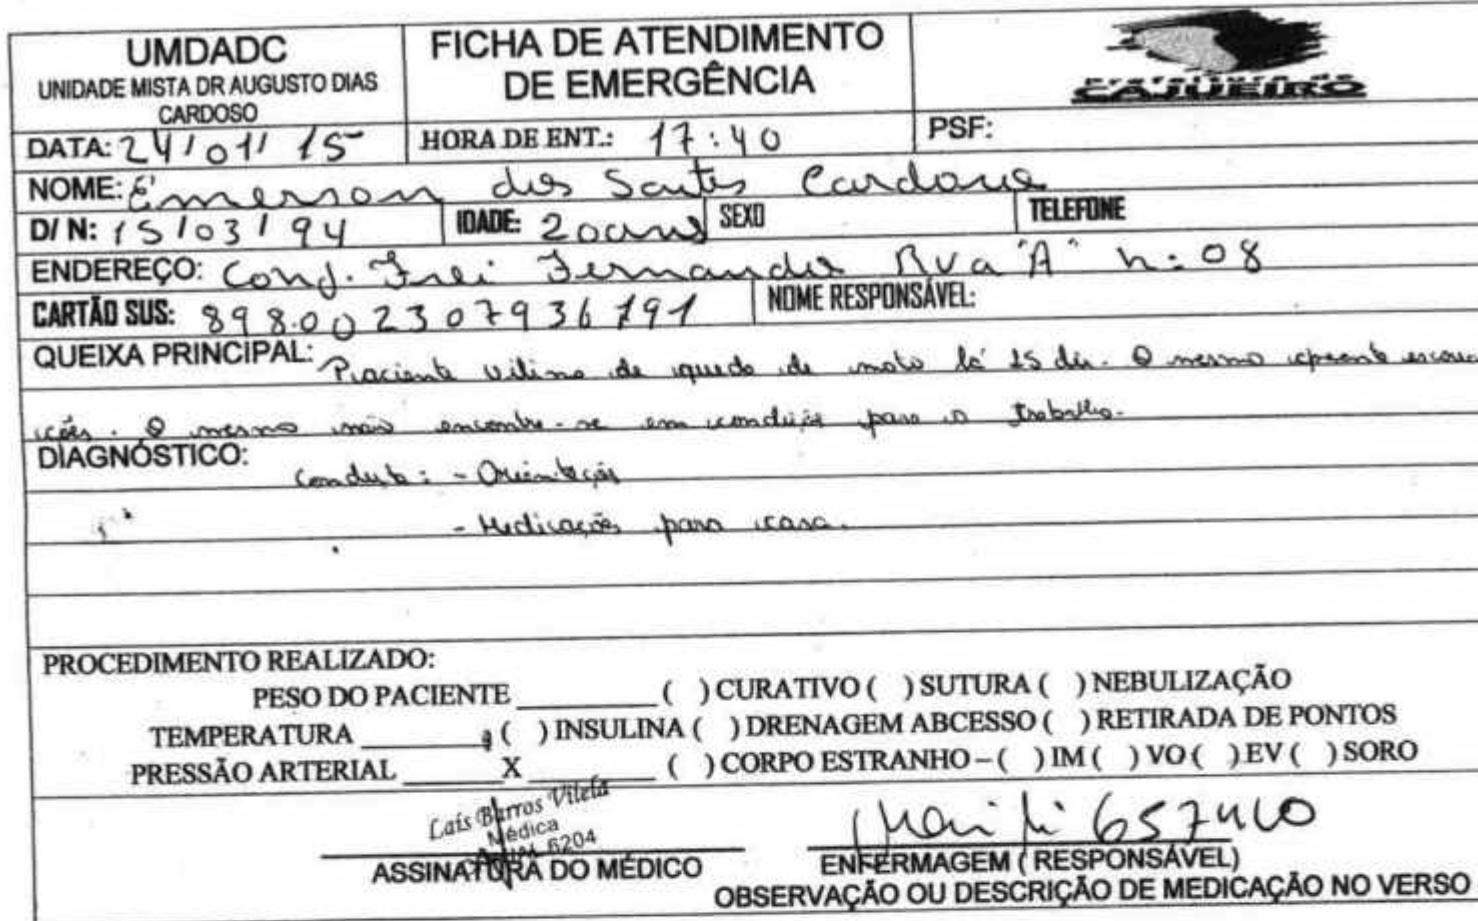 UMDADC
UNIDADE MISTA DR AUGUSTO DIAS
CARDOSO
FICHA DE ATENDIMENTO
DE EMERGÊNCIA
prefeitura de
CAJUEIRO
DATA: 24/01/15 HORA DE ENT.: 17:40 PSF:
NOME: Emerson dos Santos
D/ N: 15/03/94 IDADE: 20 anos SEXO TELEFONE
ENDEREÇO: Conj. Frei Fernandes Rua "A" n: 08
CARTÃO SUS: 898.002307936191 NOME RESPONSÁVEL:
QUEIXA PRINCIPAL: Paciente vitima de queda de moto há 15 dia. O mesmo apresenta
ções. O mesmo não encontra-se em condições para o trabalho.
DIAGNÓSTICO:
Conduta: - Orientações
- Medicações para casa.
PROCEDIMENTO REALIZADO:
PESO DO PACIENTE ________ ( ) CURATIVO ( ) SUTURA ( ) NEBULIZAÇÃO
TEMPERATURA ________ ( ) INSULINA ( ) DRENAGEM ABCESSO ( ) RETIRADA DE PONTOS
PRESSÃO ARTERIAL ______X________ ( ) CORPO ESTRANHO – ( ) IM ( ) VO ( ) EV ( ) SORO
Laís Barros Vilela
Médica
6204
ASSINATURA DO MÉDICO
ENFERMAGEM ( RESPONSÁVEL)
OBSERVAÇÃO OU DESCRIÇÃO DE MEDICAÇÃO NO VERSO